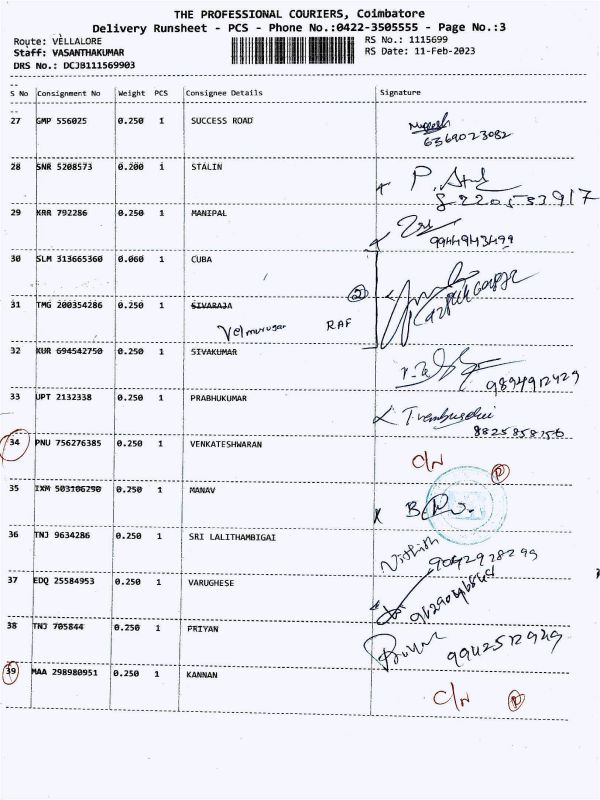 THE PROFESSIONAL COURIERS, Coimbatore
Delivery Runsheet - PCS - Phone No.:0422-3505555 - Page No.:3
Route: VELLALORE RS No.: 1115699
Staff: VASANTHAKUMAR RS Date: 11-Feb-2023
DRS No.: DCJB111569903
S No Consignment No Weight PCS Consignee Details Signature
27 GMP 556025 0.250 1 SUCCESS ROAD
6369023082
28 SNR 5208573 0.200 1 STALIN
8220533917
29 KRR 792286 0.250 1 MANIPAL
9944943499
30 SLM 313665360 0.060 1 CUBA
2
31 TMG 200354286 0.250 1 SIVARAJA
Velmurugan RAF
32 KUR 694542750 0.250 1 SIVAKUMAR
9894912429
33 UPT 2132338 0.250 1 PRABHUKUMAR
8825858756
34 PNU 756276385 0.250 1 VENKATESHWARAN
C/N
35 IXM 503106290 0.250 1 MANAV
36 TNJ 9634286 0.250 1 SRI LALITHAMBIGAI
Nithish 9042928299
37 EDQ 25584953 0.250 1 VARUGHESE
38 TNJ 705844 0.250 1 PRIYAN
9942512929
39 MAA 298980951 0.250 1 KANNAN
C/N